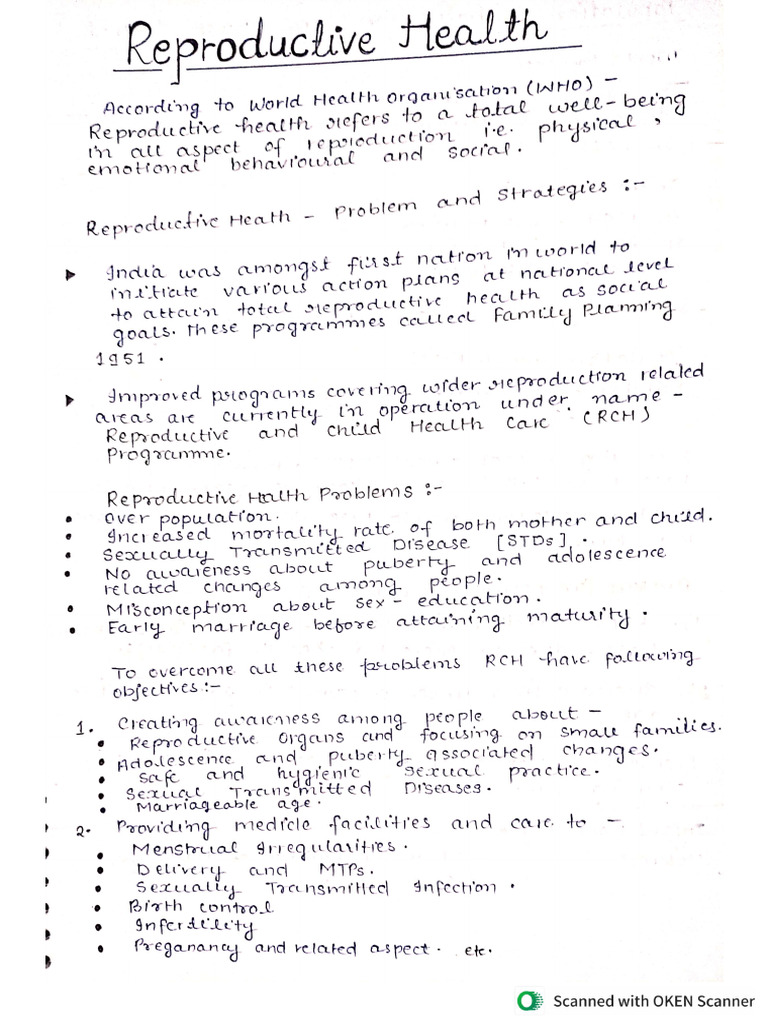 Reproductive Health
According to World Health Organisation (WHO) –
Reproductive health refers to a total well-being
in all aspect of reproduction i.e. physical,
emotional behavioural and social.
Reproductive Heath – Problem and Strategies :-
➤ India was amongst first nation in world to
initiate various action plans at national level
to attain total reproductive health as social
goals. These programmes called Family Planning
1951.
➤ Improved programs covering wider reproduction related
areas are currently in operation under name –
Reproductive and Child Health Care (RCH)
Programme.
Reproductive Health Problems :-
• Over population.
• Increased mortality rate of both mother and child.
• Sexually Transmitted Disease [STDs].
• No awareness about puberty and adolescence
related changes among people.
• Misconception about sex-education.
• Early marriage before attaining maturity.
To overcome all these problems RCH have following
objectives :-
1. Creating awareness among people about –
• Reproductive organs and focusing on small families.
• Adolescence and puberty associated changes.
• Safe and hygienic sexual practice.
• Sexual Transmitted Diseases.
• Marriageable age.
2. Providing medicle facilities and care to –
• Menstrual Irregularities.
• Delivery and MTPs.
• Sexually Transmitted Infection.
• Birth control
• Infertility
• Preganancy and related aspect. etc.
Scanned with OKEN Scanner